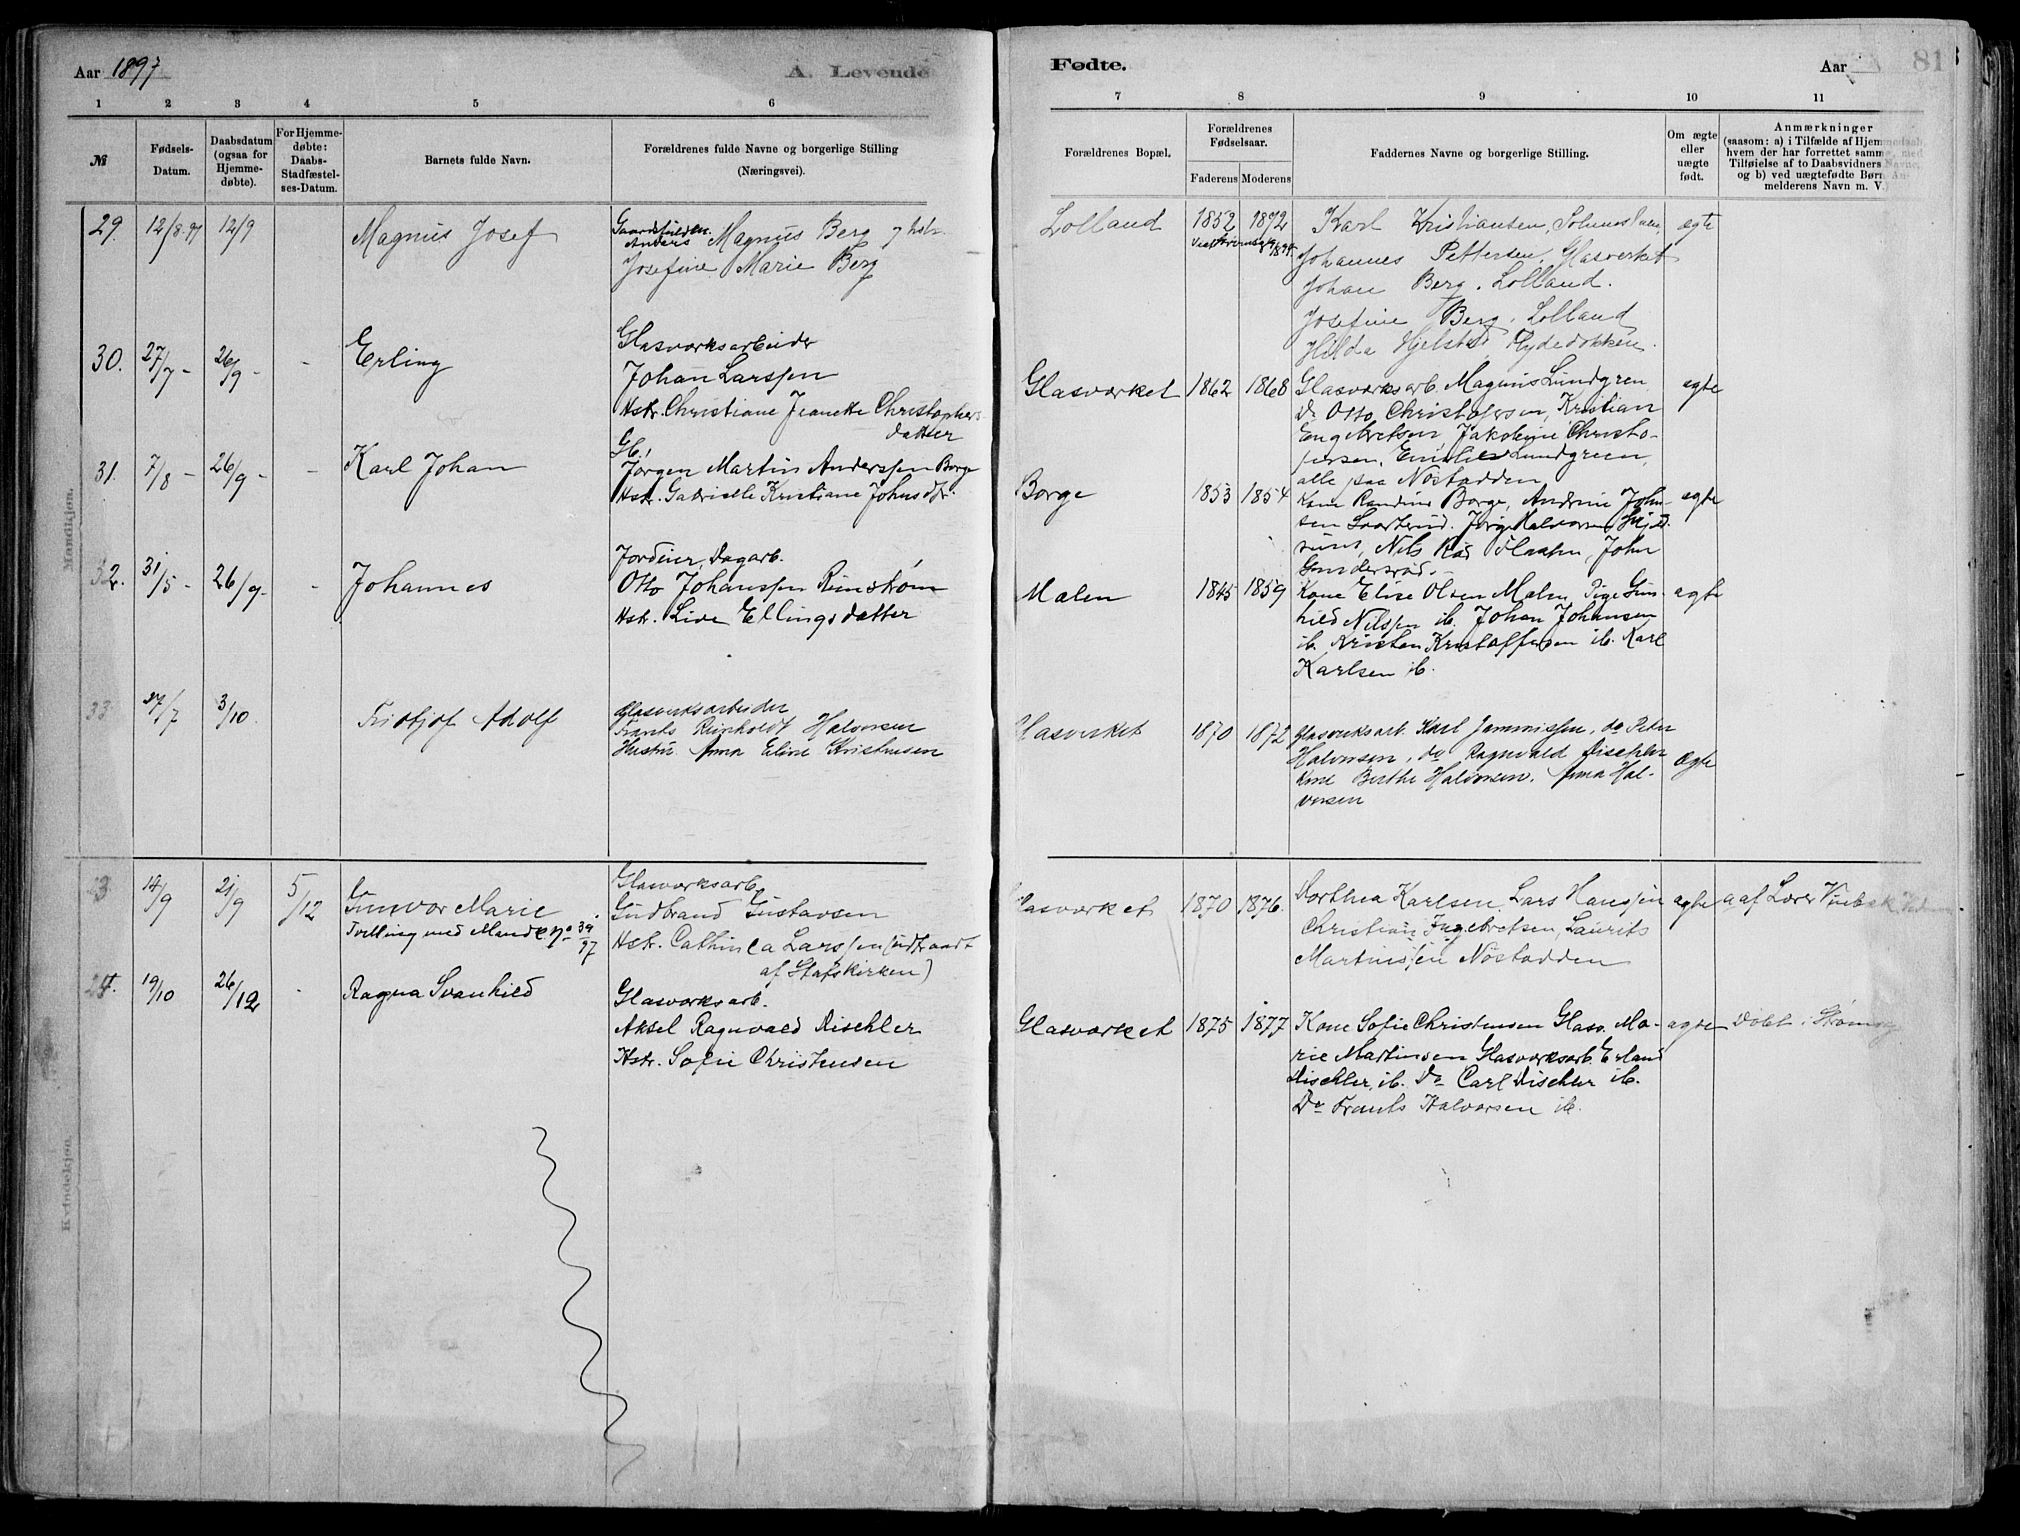 Aar 1897
A. Levende
Fødte.
Aar
81
1 2 3 4 5 6 7 8 9 10 11
№
Fødsels-
Datum.
Daabsdatum
(ogsaa for
Hjemme-
døbte).
For Hjemme-
døbte:
Daabs-
Stadfæstel-
ses-Datum.
Barnets fulde Navn.
Forældrenes fulde Navne og borgerlige Stilling
(Næringsvei).
Forældrenes Bopæl.
Forældrenes
Fødselsaar.
Faderens Moderens
Faddernes Navne og borgerlige Stilling.
Om ægte
eller
uægte
født.
Anmærkninger
(saasom: a) i Tilfælde af Hjemmedaab,
hvem der har forrettet samme, med
Tilføielse af to Daabsvidners Navne,
og b) ved uægtefødte Børn An-
melderens Navn m. V.)
Mandkjøn.
29. 12/8 97 12/9
Magnus Josef
Anders Magnus Berg
Josefine Marie Berg
Lolland
1852 1872
Karl Kristiansen,
Johannes Pettersen, Glasverket
Johan Berg, Lolland.
Josefine Berg, Lolland
Hilda Hjelstad
ægte
30. 27/7 - 26/9 - -
Erling
Glasværksarbeider
Johan Larssen
Hstr. Christiane Jeanette Christophers
datter
Glasværket
1862 1868
Glasværksarb. Magnus Lundgren
Do Otto Christofersen, Kristian
Engebretsen, Jakobine Christo-
fersen, Emilie Lundgreen,
alle paa Nøstodden
ægte
31. 7/8 - 26/9 - -
Karl Johan
Gb.
Jørgen Martin Anderssen Borge
Hstr. Gabrielle Kristiane Johnsdtr.
Borge
1853 1854
Kone Randine Borge, Andrine John-
sen Svarterud.
Nils John
ægte
32. 31/5 - 26/9 - -
Johannes
Jordeier, Dagarb.
Otto Johanssen Rinstrøm
Hstr. Live Ellingsdatter
Malen
1845 1859
Kone Elise Olsen Malen, Pige Gun-
hild Nilssen ib. Johan Johansen
ib. Kristen Kristoffersen ib. Karl
Karlsen ib.
ægte
33 27/7 3/10
Fridtjof Adolf
Glasverksarbeider
Frants Reinholdt Halvorsen
Hustru Anna Eline Kristensen
Glasverket
1870 1872
Glasverksarb. Karl Jammissen, do Peter
Halvorsen, do Ragnvald Dischler
Kone Berthe Halvorsen. Anna Hal-
vorsen
Ægte
Kvindekjøn.
23 14/9 21/9 5/12
Gunvor Marie
Tvilling med Mandk. No 39/97
Glasværksarb.
Gudbrand Gustavsen
Hstr. Cathinca Larssen (udtraadt
af Statskirken)
Glasværket
1870 1876.
Dorthea Karlsen, Lars Hanssen
Christian Ingebretsen, Laurits
Martinssen Nøstodden
ægte
a af Lærer
24. 19/10 26/12 -
Ragna Svanhild
Glasværksarb.
Aksel Ragnvald Dischler
Hstr. Sofie Christensen
Glasværket
1875 1877
Kone Sofie Christensen Glasv. Ma-
rie Martinsen Glasværksarb. Erland
Dischler, ib. Do Carl Dischler ib.
Do Frants Halvorsen ib.
ægte
Døbt i Strømsg